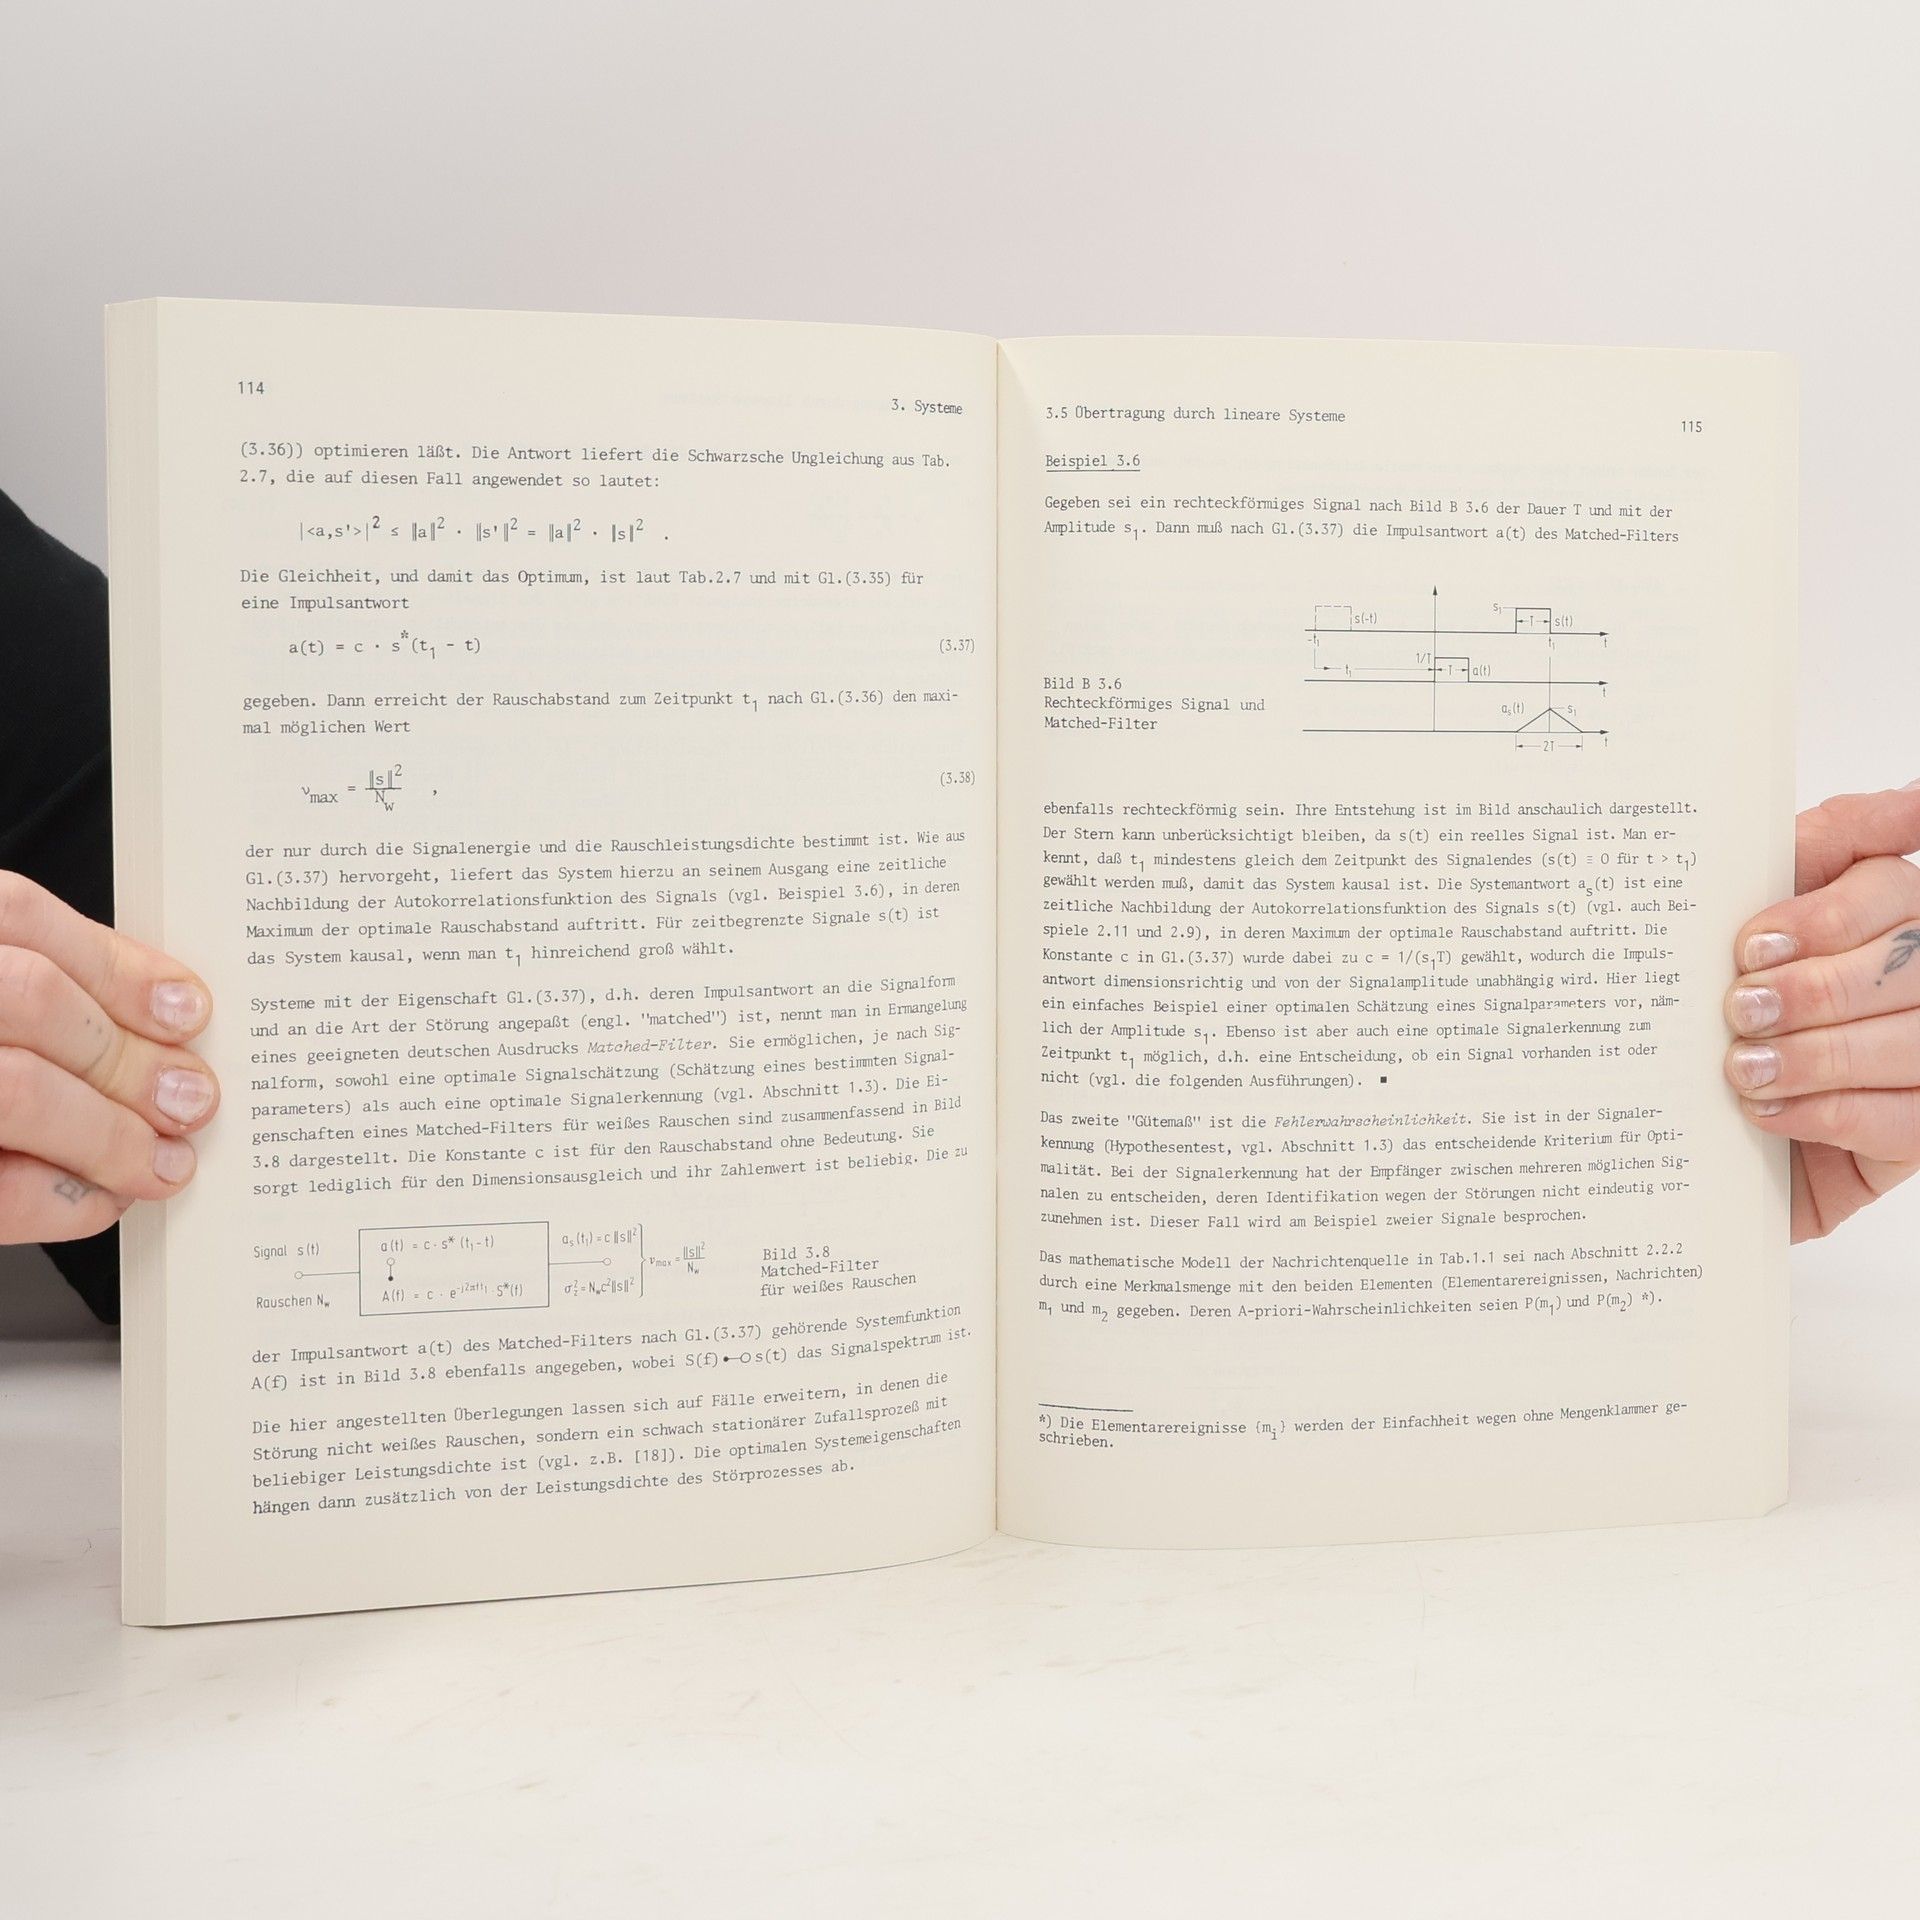 114
3. Systeme
(3.36)) optimieren läßt. Die Antwort liefert die Schwarzsche Ungleichung aus Tab.
2.7, die auf diesen Fall angewendet so lautet:
|<a,s'>|² ≤ ‖a‖² · ‖s'‖² = ‖a‖² · ‖s‖² .
Die Gleichheit, und damit das Optimum, ist laut Tab.2.7 und mit Gl.(3.35) für
eine Impulsantwort
a(t) = c · s*(t₁ - t) (3.37)
gegeben. Dann erreicht der Rauschabstand zum Zeitpunkt t₁ nach Gl.(3.36) den maxi-
mal möglichen Wert
ν_max = ‖s‖²/N_w , (3.38)
der nur durch die Signalenergie und die Rauschleistungsdichte bestimmt ist. Wie aus
Gl.(3.37) hervorgeht, liefert das System hierzu an seinem Ausgang eine zeitliche
Nachbildung der Autokorrelationsfunktion des Signals (vgl. Beispiel 3.6), in deren
Maximum der optimale Rauschabstand auftritt. Für zeitbegrenzte Signale s(t) ist
das System kausal, wenn man t₁ hinreichend groß wählt.
Systeme mit der Eigenschaft Gl.(3.37), d.h. deren Impulsantwort an die Signalform
und an die Art der Störung angepaßt (engl. "matched") ist, nennt man in Ermangelung
eines geeigneten deutschen Ausdrucks Matched-Filter. Sie ermöglichen, je nach Sig-
nalform, sowohl eine optimale Signalschätzung (Schätzung eines bestimmten Signal-
parameters) als auch eine optimale Signalerkennung (vgl. Abschnitt 1.3). Die Ei-
genschaften eines Matched-Filters für weißes Rauschen sind zusammenfassend in Bild
3.8 dargestellt. Die Konstante c ist für den Rauschabstand ohne Bedeutung. Sie
sorgt lediglich für den Dimensionsausgleich und ihr Zahlenwert ist beliebig. Die zu
Signal s(t)
Rauschen N_w
a(t) = c · s*(t₁-t)
A(f) = c · e^{-j2πft₁} · S*(f)
a_s(t₁) = c‖s‖²
σ_z² = N_w c²‖s‖²
ν_max = ‖s‖²/N_w
Bild 3.8
Matched-Filter
für weißes Rauschen
der Impulsantwort a(t) des Matched-Filters nach Gl.(3.37) gehörende Systemfunktion
A(f) ist in Bild 3.8 ebenfalls angegeben, wobei S(f)●—○s(t) das Signalspektrum ist.
Die hier angestellten Überlegungen lassen sich auf Fälle erweitern, in denen die
Störung nicht weißes Rauschen, sondern ein schwach stationärer Zufallsprozeß mit
beliebiger Leistungsdichte ist (vgl. z.B. [18]). Die optimalen Systemeigenschaften
hängen dann zusätzlich von der Leistungsdichte des Störprozesses ab.
3.5 Übertragung durch lineare Systeme
115
Beispiel 3.6
Gegeben sei ein rechteckförmiges Signal nach Bild B 3.6 der Dauer T und mit der
Amplitude s₁. Dann muß nach Gl.(3.37) die Impulsantwort a(t) des Matched-Filters
s(-t) s₁ T s(t)
-t₁ t₁ t
t₁ 1/T T a(t) t
a_s(t) s₁
2T t
Bild B 3.6
Rechteckförmiges Signal und
Matched-Filter
ebenfalls rechteckförmig sein. Ihre Entstehung ist im Bild anschaulich dargestellt.
Der Stern kann unberücksichtigt bleiben, da s(t) ein reelles Signal ist. Man er-
kennt, daß t₁ mindestens gleich dem Zeitpunkt des Signalendes (s(t) ≡ 0 für t > t₁)
gewählt werden muß, damit das System kausal ist. Die Systemantwort a_s(t) ist eine
zeitliche Nachbildung der Autokorrelationsfunktion des Signals s(t) (vgl. auch Bei-
spiele 2.11 und 2.9), in deren Maximum der optimale Rauschabstand auftritt. Die
Konstante c in Gl.(3.37) wurde dabei zu c = 1/(s₁T) gewählt, wodurch die Impuls-
antwort dimensionsrichtig und von der Signalamplitude unabhängig wird. Hier liegt
ein einfaches Beispiel einer optimalen Schätzung eines Signalparameters vor, näm-
lich der Amplitude s₁. Ebenso ist aber auch eine optimale Signalerkennung zum
Zeitpunkt t₁ möglich, d.h. eine Entscheidung, ob ein Signal vorhanden ist oder
nicht (vgl. die folgenden Ausführungen). ■
Das zweite "Gütemaß" ist die Fehlerwahrscheinlichkeit. Sie ist in der Signaler-
kennung (Hypothesentest, vgl. Abschnitt 1.3) das entscheidende Kriterium für Opti-
malität. Bei der Signalerkennung hat der Empfänger zwischen mehreren möglichen Sig-
nalen zu entscheiden, deren Identifikation wegen der Störungen nicht eindeutig vor-
zunehmen ist. Dieser Fall wird am Beispiel zweier Signale besprochen.
Das mathematische Modell der Nachrichtenquelle in Tab.1.1 sei nach Abschnitt 2.2.2
durch eine Merkmalsmenge mit den beiden Elementen (Elementarereignissen, Nachrichten)
m₁ und m₂ gegeben. Deren A-priori-Wahrscheinlichkeiten seien P(m₁) und P(m₂) *).
*) Die Elementarereignisse {m_i} werden der Einfachheit wegen ohne Mengenklammer ge-
schrieben.